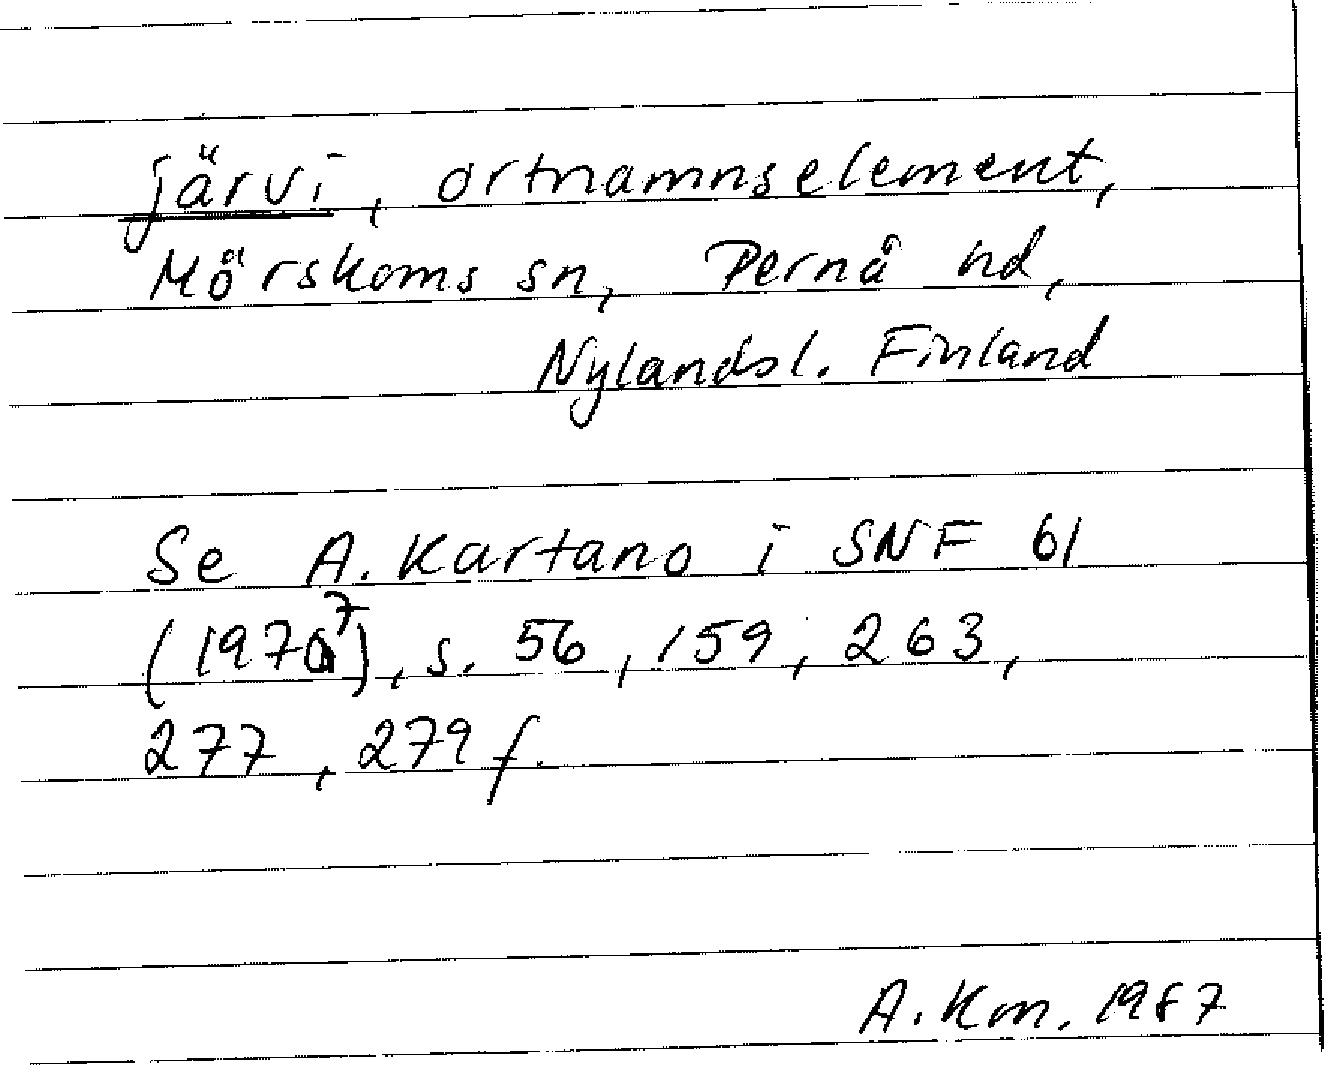 järvi, ortnamnselement,
Mörskoms sn, Pernå hd,
Nylandsl. Finland
Se A. Kartano i SNF 61
(1977), s. 56, 159, 263,
277, 279 f.
A. Km. 1987